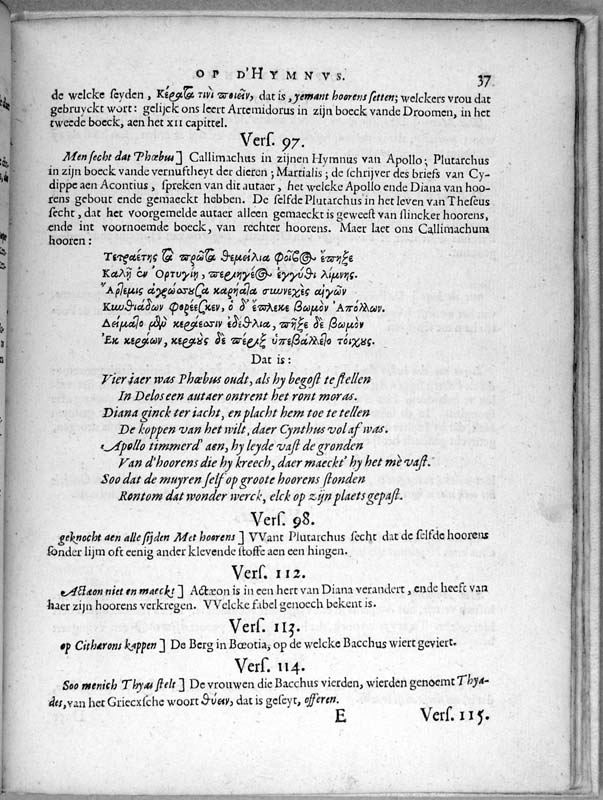 OP D'HYMNVS. 37
de welcke seyden, Κέρατα τινὶ ποιεῖν, dat is, yemant hoorens setten; welckers vrou dat
gebruyckt wort: gelijck ons leert Artemidorus in zijn boeck vande Droomen, in het
tweede boeck, aen het XII capittel.
Vers. 97.
Men secht dat Phœbus] Callimachus in zijnen Hymnus van Apollo; Plutarchus
in zijn boeck vande vernuftheyt der dieren; Martialis; de schrijver des briefs van Cy-
dippe aen Acontius, spreken van dit autaer, het welcke Apollo ende Diana van hoo-
rens gebout ende gemaeckt hebben. De selfde Plutarchus in het leven van Theseus
secht, dat het voorgemelde autaer alleen gemaeckt is geweest van slincker hoorens,
ende int voornoemde boeck, van rechter hoorens. Maer laet ons Callimachum
hooren:
Τετραέτης τὰ πρῶτα θεμείλια φοῖβος ἔπηξε
Καλῇ ἐν Ὀρτυγίῃ, περιηγέος ἐγγύθι λίμνης.
Ἄρτεμις ἀγρώσσουσα καρήατα συνεχὲς αἰγῶν
Κυνθιάδων φορέεσκεν, ὁ δ' ἔπλεκε βωμὸν Ἀπόλλων.
Δείματο μὲν κεράεσσιν ἐδέθλια, πῆξε δὲ βωμὸν
Ἐκ κεράων, κεραοὺς δὲ πέριξ ὑπεβάλλετο τοίχους.
Dat is:
Vier jaer was Phœbus oudt, als hy begost te stellen
In Delos een autaer ontrent het ront moras.
Diana ginck ter iacht, en placht hem toe te tellen
De koppen van het wilt, daer Cynthus vol af was.
Apollo timmerd' aen, hy leyde vast de gronden
Van d'hoorens die hy kreech, daer maeckt' hy het mè vast.
Soo dat de muyren self op groote hoorens stonden
Rontom dat wonder werck, elck op zijn plaets gepast.
Vers. 98.
geknocht aen alle sijden Met hoorens] VVant Plutarchus secht dat de selfde hoorens
sonder lijm oft eenig ander klevende stoffe aen een hingen.
Vers. 112.
Actæon niet en maeckt] Actæon is in een hert van Diana verandert, ende heeft van
haer zijn hoorens verkregen. VVelcke fabel genoech bekent is.
Vers. 113.
op Citharons kappen] De Berg in Bœotia, op de welcke Bacchus wiert geviert.
Vers. 114.
Soo menich Thyas stelt] De vrouwen die Bacchus vierden, wierden genoemt Thya-
des, van het Griecxsche woort θύειν, dat is geseyt, offeren.
E Vers. 115.